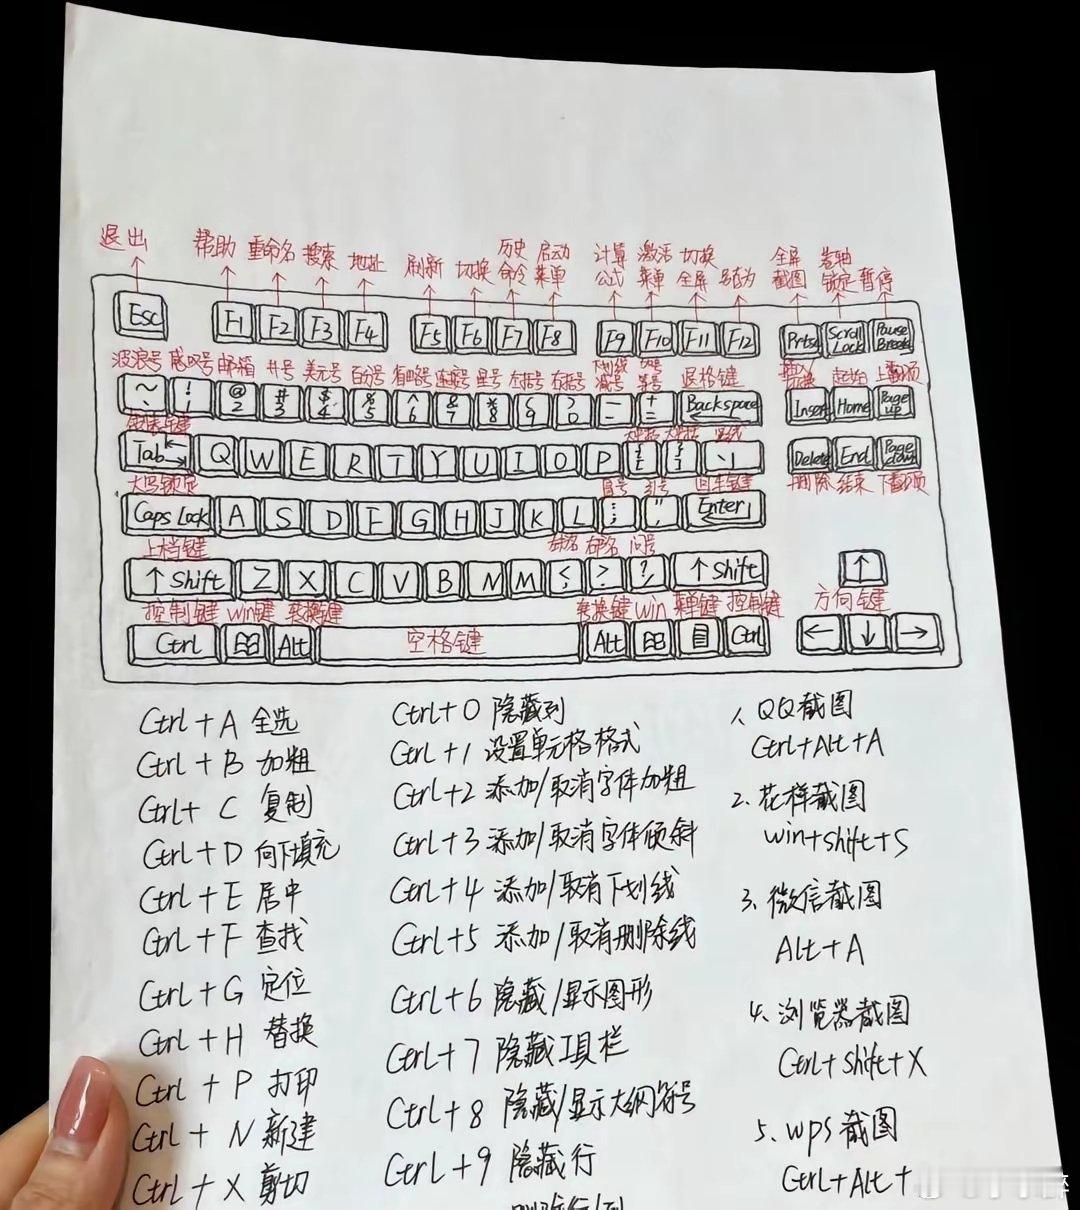 退出 帮助 重命名 搜索 地址 刷新 切换 历史命令 启动菜单 计算公式 激活菜单 切换全屏 另存为 全屏截图 卷轴锁定 暂停
Esc F1 F2 F3 F4 F5 F6 F7 F8 F9 F10 F11 F12 Prtsc Scroll Lock Pause Break
波浪号 感叹号 邮箱 井号 美元号 百分号 省略号 连接号 星号 左括号 右括号 下划线减号 等号 退格键 插入 起始 上翻页
~ ` ! 1 @ 2 # 3 $ 4 % 5 ^ 6 & 7 * 8 ( 9 ) 0 _ - + = Backspace Insert Home Page up
Tab Q W E R T Y U I O P { [ } ] \ | Delete End Page down
大写锁定 冒号 引号 回车键 删除 结束 下翻页
Caps Lock A S D F G H J K L : ; " ' Enter
上档键 问号
↑ Shift Z X C V B N M < , > . ? / ↑ Shift ↑
控制键 Win键 变换键 变换键 Win 菜单键 控制键 方向键
Ctrl Alt 空格键 Alt Ctrl ← ↓ →
Ctrl + A 全选
Ctrl + B 加粗
Ctrl + C 复制
Ctrl + D 向下填充
Ctrl + E 居中
Ctrl + F 查找
Ctrl + G 定位
Ctrl + H 替换
Ctrl + P 打印
Ctrl + N 新建
Ctrl + X 剪切
Ctrl + 0 隐藏列
Ctrl + 1 设置单元格格式
Ctrl + 2 添加/取消字体加粗
Ctrl + 3 添加/取消字体倾斜
Ctrl + 4 添加/取消下划线
Ctrl + 5 添加/取消删除线
Ctrl + 6 隐藏/显示图形
Ctrl + 7 隐藏工具栏
Ctrl + 8 隐藏/显示大纲符号
Ctrl + 9 隐藏行
1、QQ截图
Ctrl+Alt+A
2、花样截图
win+shift+S
3、微信截图
Alt+A
4、浏览器截图
Ctrl+shift+X
5、wps截图
Ctrl+Alt+